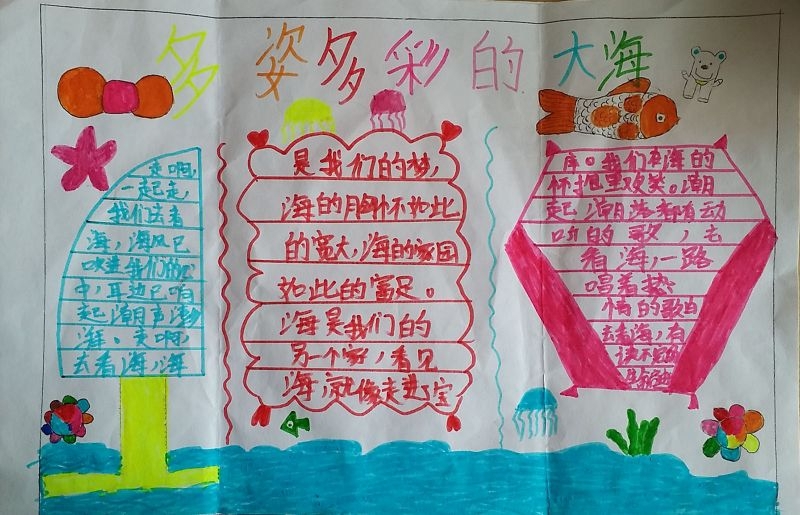 多姿多彩的大海
走啊,
一起走,
我们去看
海,海风已
吹进我们的心
中,耳边已响
起潮声海
海。走啊
去看海,海
是我们的梦,
海的胸怀如此
的宽大,海的家园
如此的富足。
海是我们的
另一个家,看见
海,就像走进了宝
库。我们在海的
怀抱里欢笑。潮
起潮落都有动
听的歌,去
看海,一路
唱着热
情的歌曲
去看海,有
读不完的